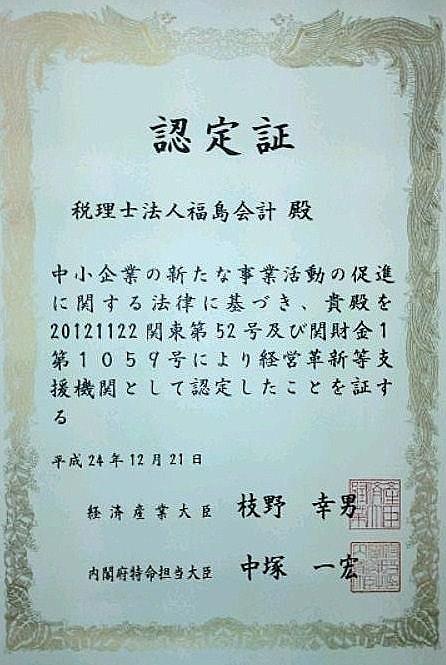 認定証
税理士法人福島会計 殿
中小企業の新たな事業活動の促進
に関する法律に基づき、貴殿を
20121122関東第52号及び関財金1
第1059号により経営革新等支
援機関として認定したことを証す
る
平成24年12月21日
経済産業大臣 枝野 幸男
内閣府特命担当大臣 中塚 一宏